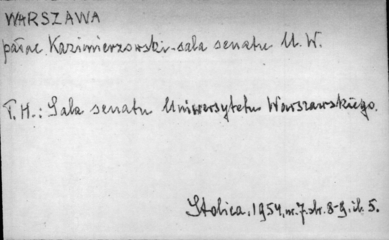 WARSZAWA
pałac Kazimierzowski-sala senatu U.W.
T.H.: Sala senatu Uniwersytetu Warszawskiego.
Stolica, 1954, nr. 7. str. 8-9, il. 5.